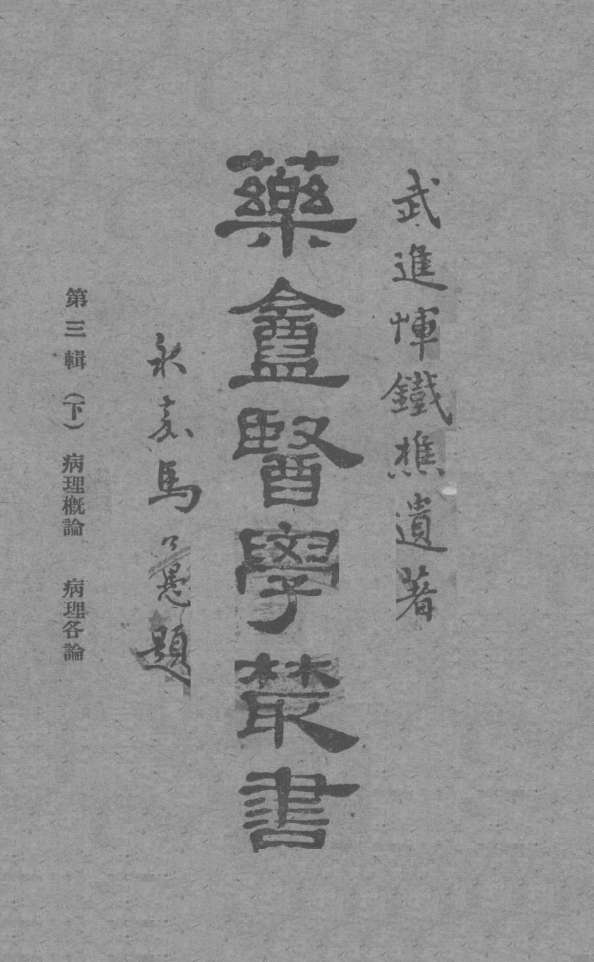 武進惲鐵樵遺著
藥盦醫學叢書
永嘉馬公愚題
第三輯（下） 病理概論 病理各論